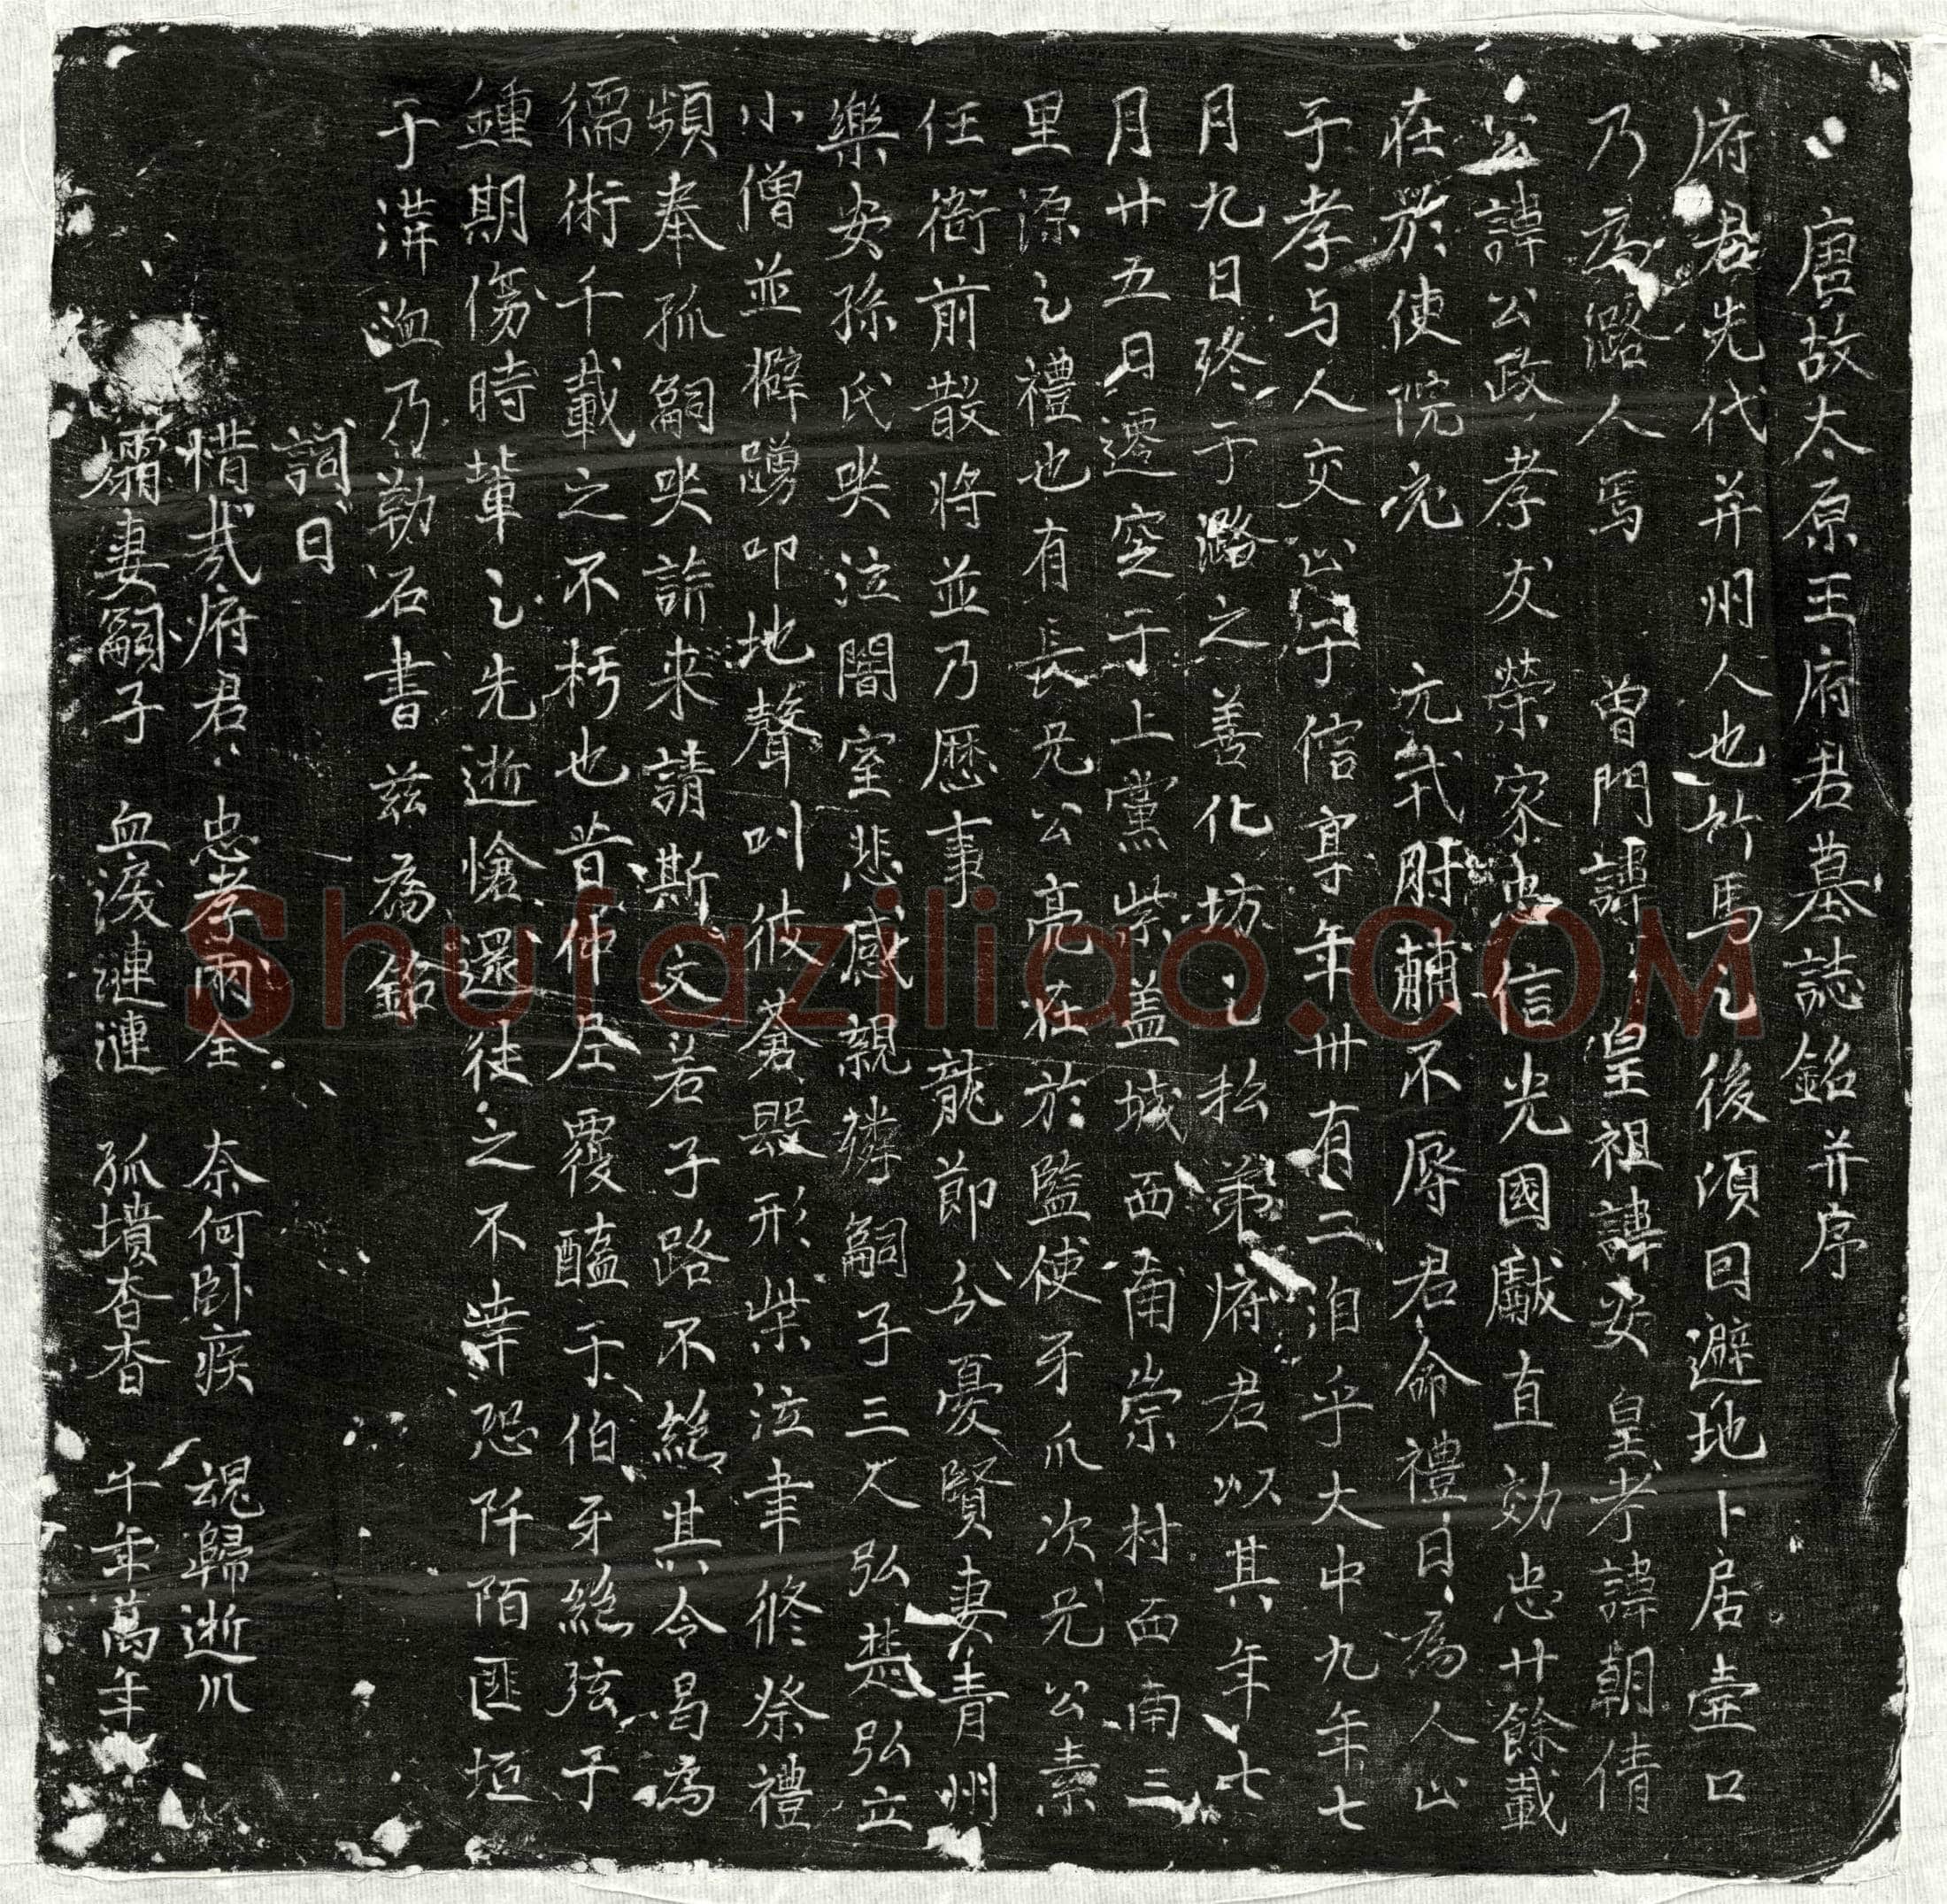 唐故太原王府君墓誌銘并序
府君先代并州人也竹馬之後湏回避地卜居壺口
乃為潞人焉 曾門諱 皇祖諱安 皇考諱朝倩
公諱公政孝友榮家忠信光國獻直効忠廿餘載
在於使院充 元戎肘輔不辱君命禮曰為人止
于孝与人交止于信享年卅有二洎乎大中九年七
月九日終于潞之善化坊之松第府君以其年七
月廿五日遷空于上黨紫盖城西南崇村西南三
里源之禮也有長兄公亮在於監使牙爪次兄公素
任衙前散將並乃歷事 龍節分憂賢妻青州
樂安孫氏哭泣闇室悲感親隣嗣子三人弘楚弘立
小僧並擗踴叩地聲叫彼蒼毀形柴泣聿修祭禮
頻奉孤嗣哭訴来請斯文若子路不絕其令曷為
儒術千載之不朽也昔仲尼覆醢于伯牙絕弦于
鍾期傷時輩之先逝愴還徒之不幸恐阡陌匪垣
于溝洫乃勒石書茲為銘
詞曰
惜哉府君 忠孝兩全 奈何卧疾 魂歸逝川
孀妻嗣子 血淚漣漣 孤墳杳杳 千年萬年
Shufaziliao.COM